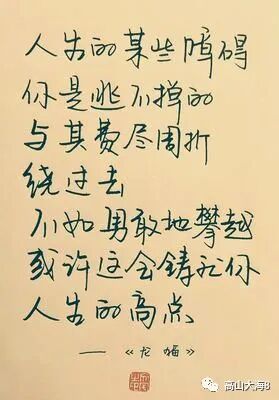 人生的某些障碍
你是逃不掉的
与其费尽周折
绕过去
不如勇敢地攀越
或许这会铸就你
人生的高点
——《尤
高山大海8